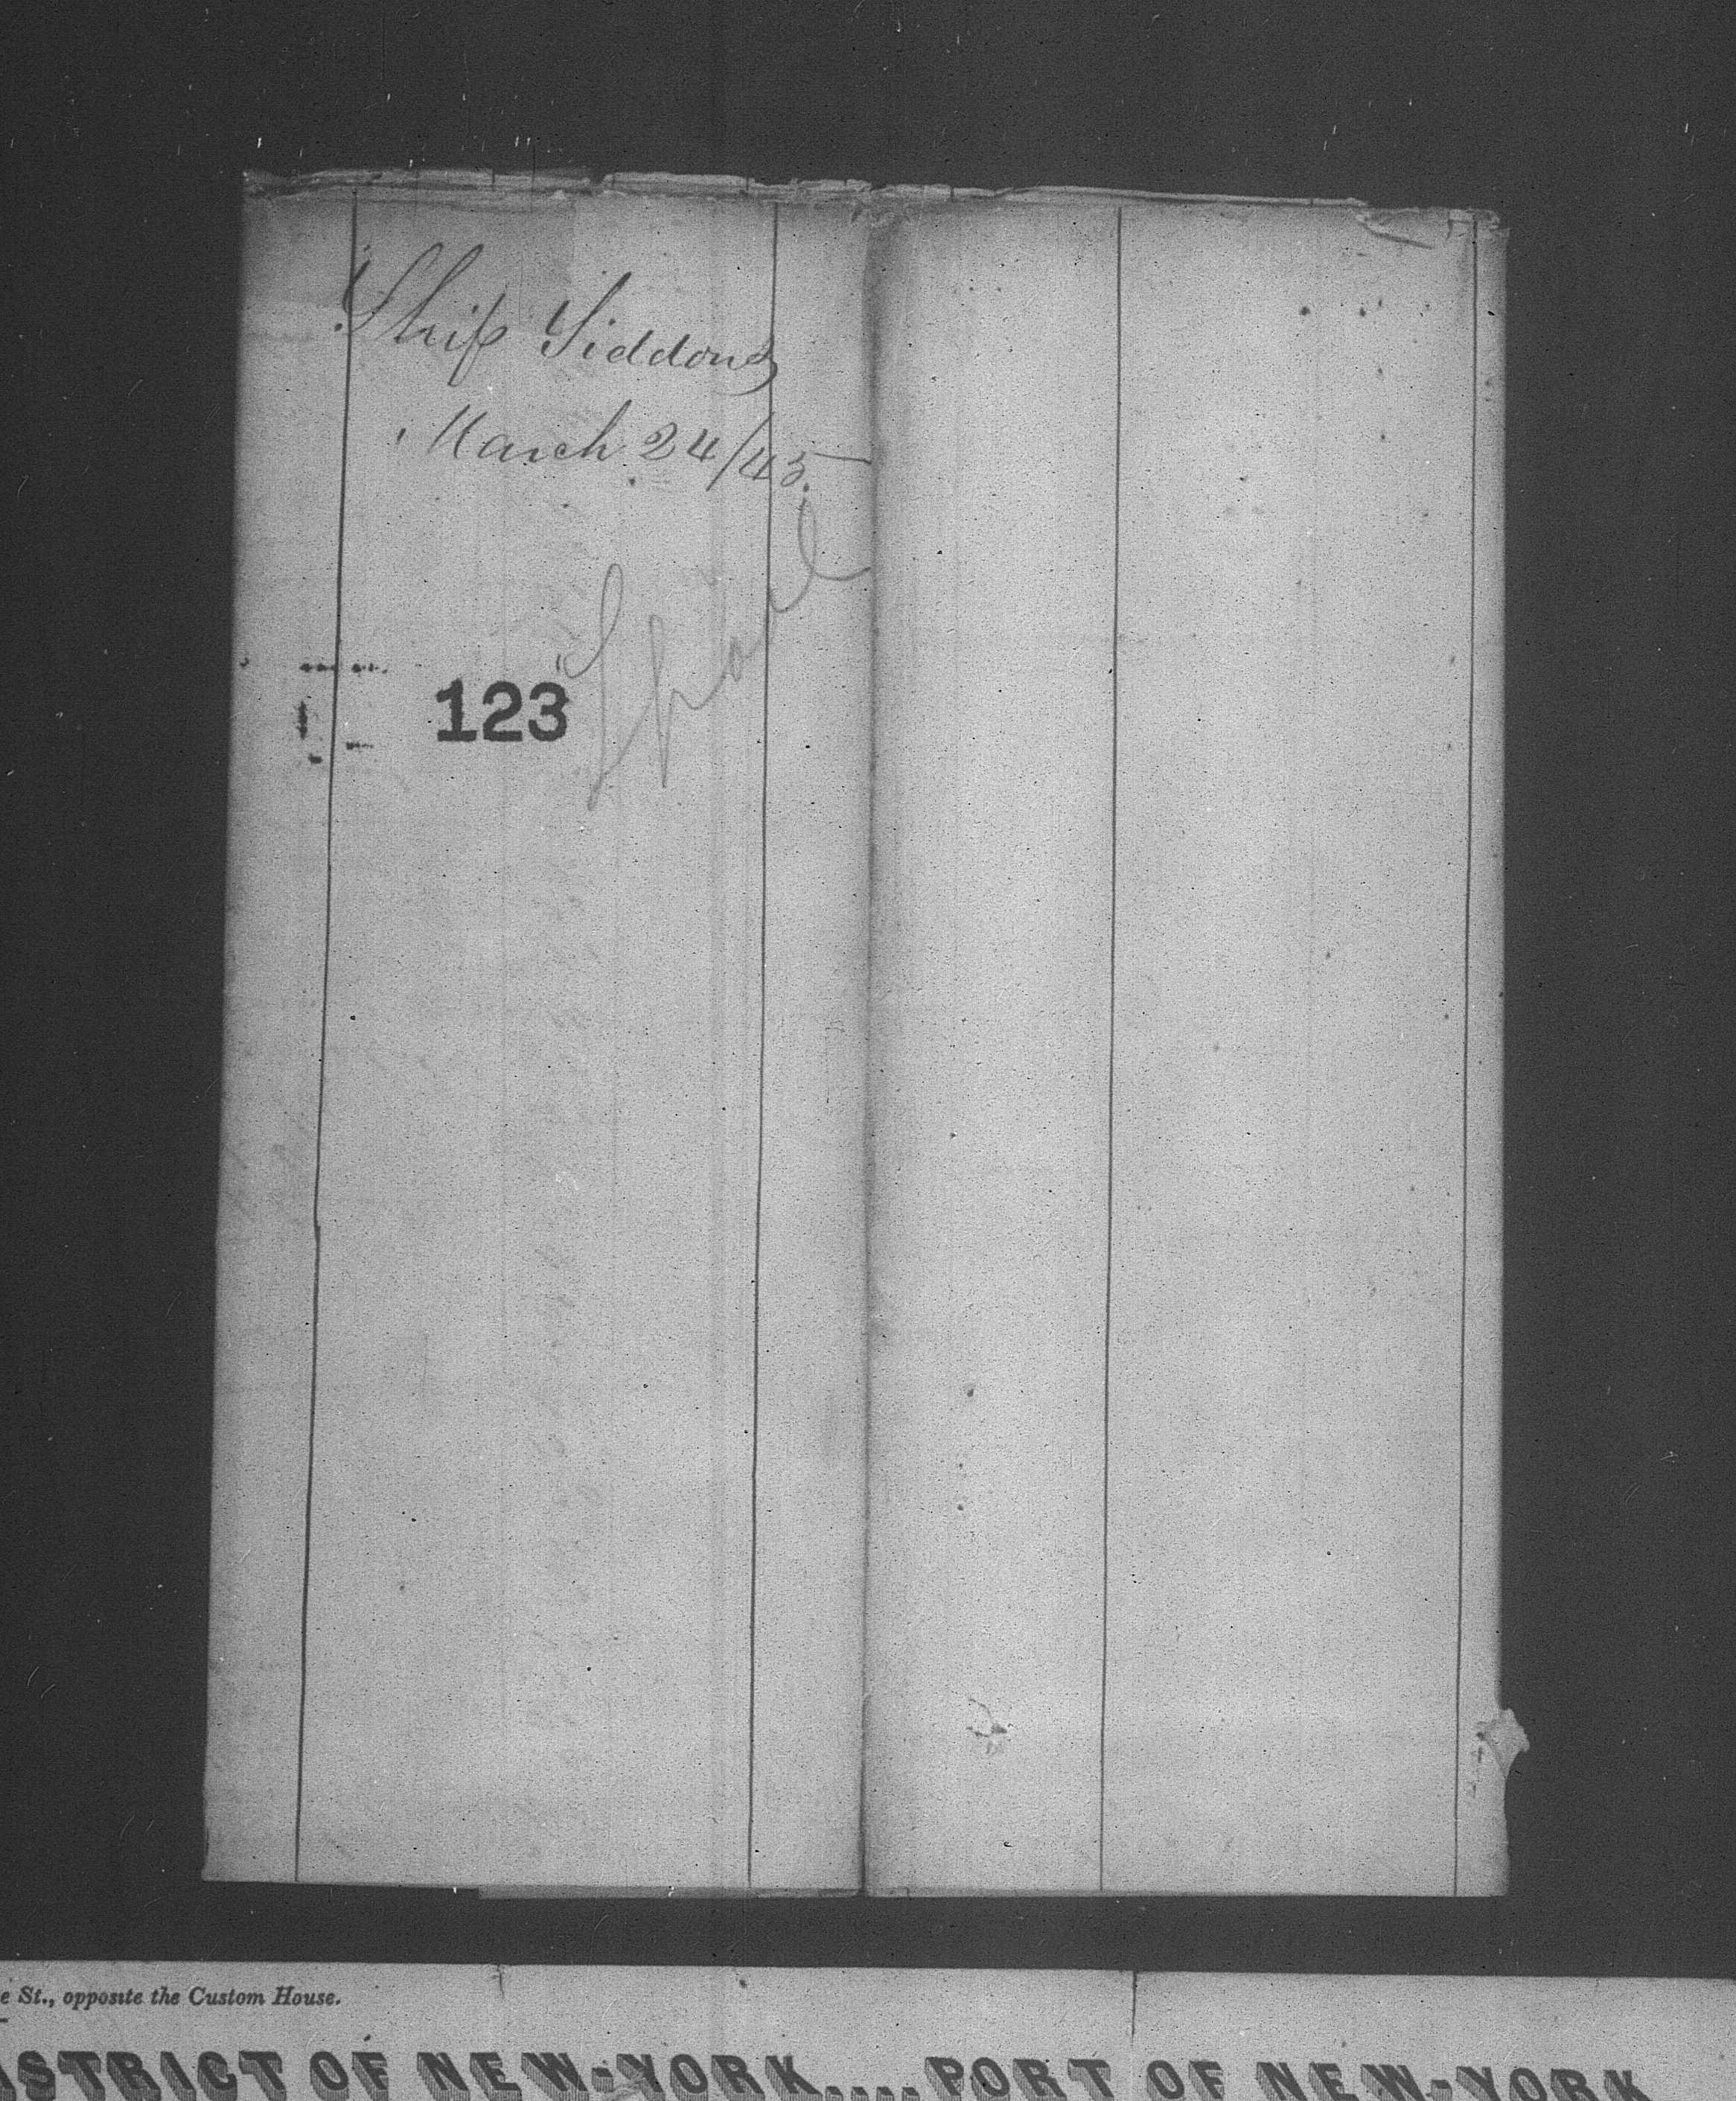 Ship Siddons
March 24/45.
123
e St., opposite the Custom House.
ISTRICT OF NEW-YORK....PORT OF NEW-YORK